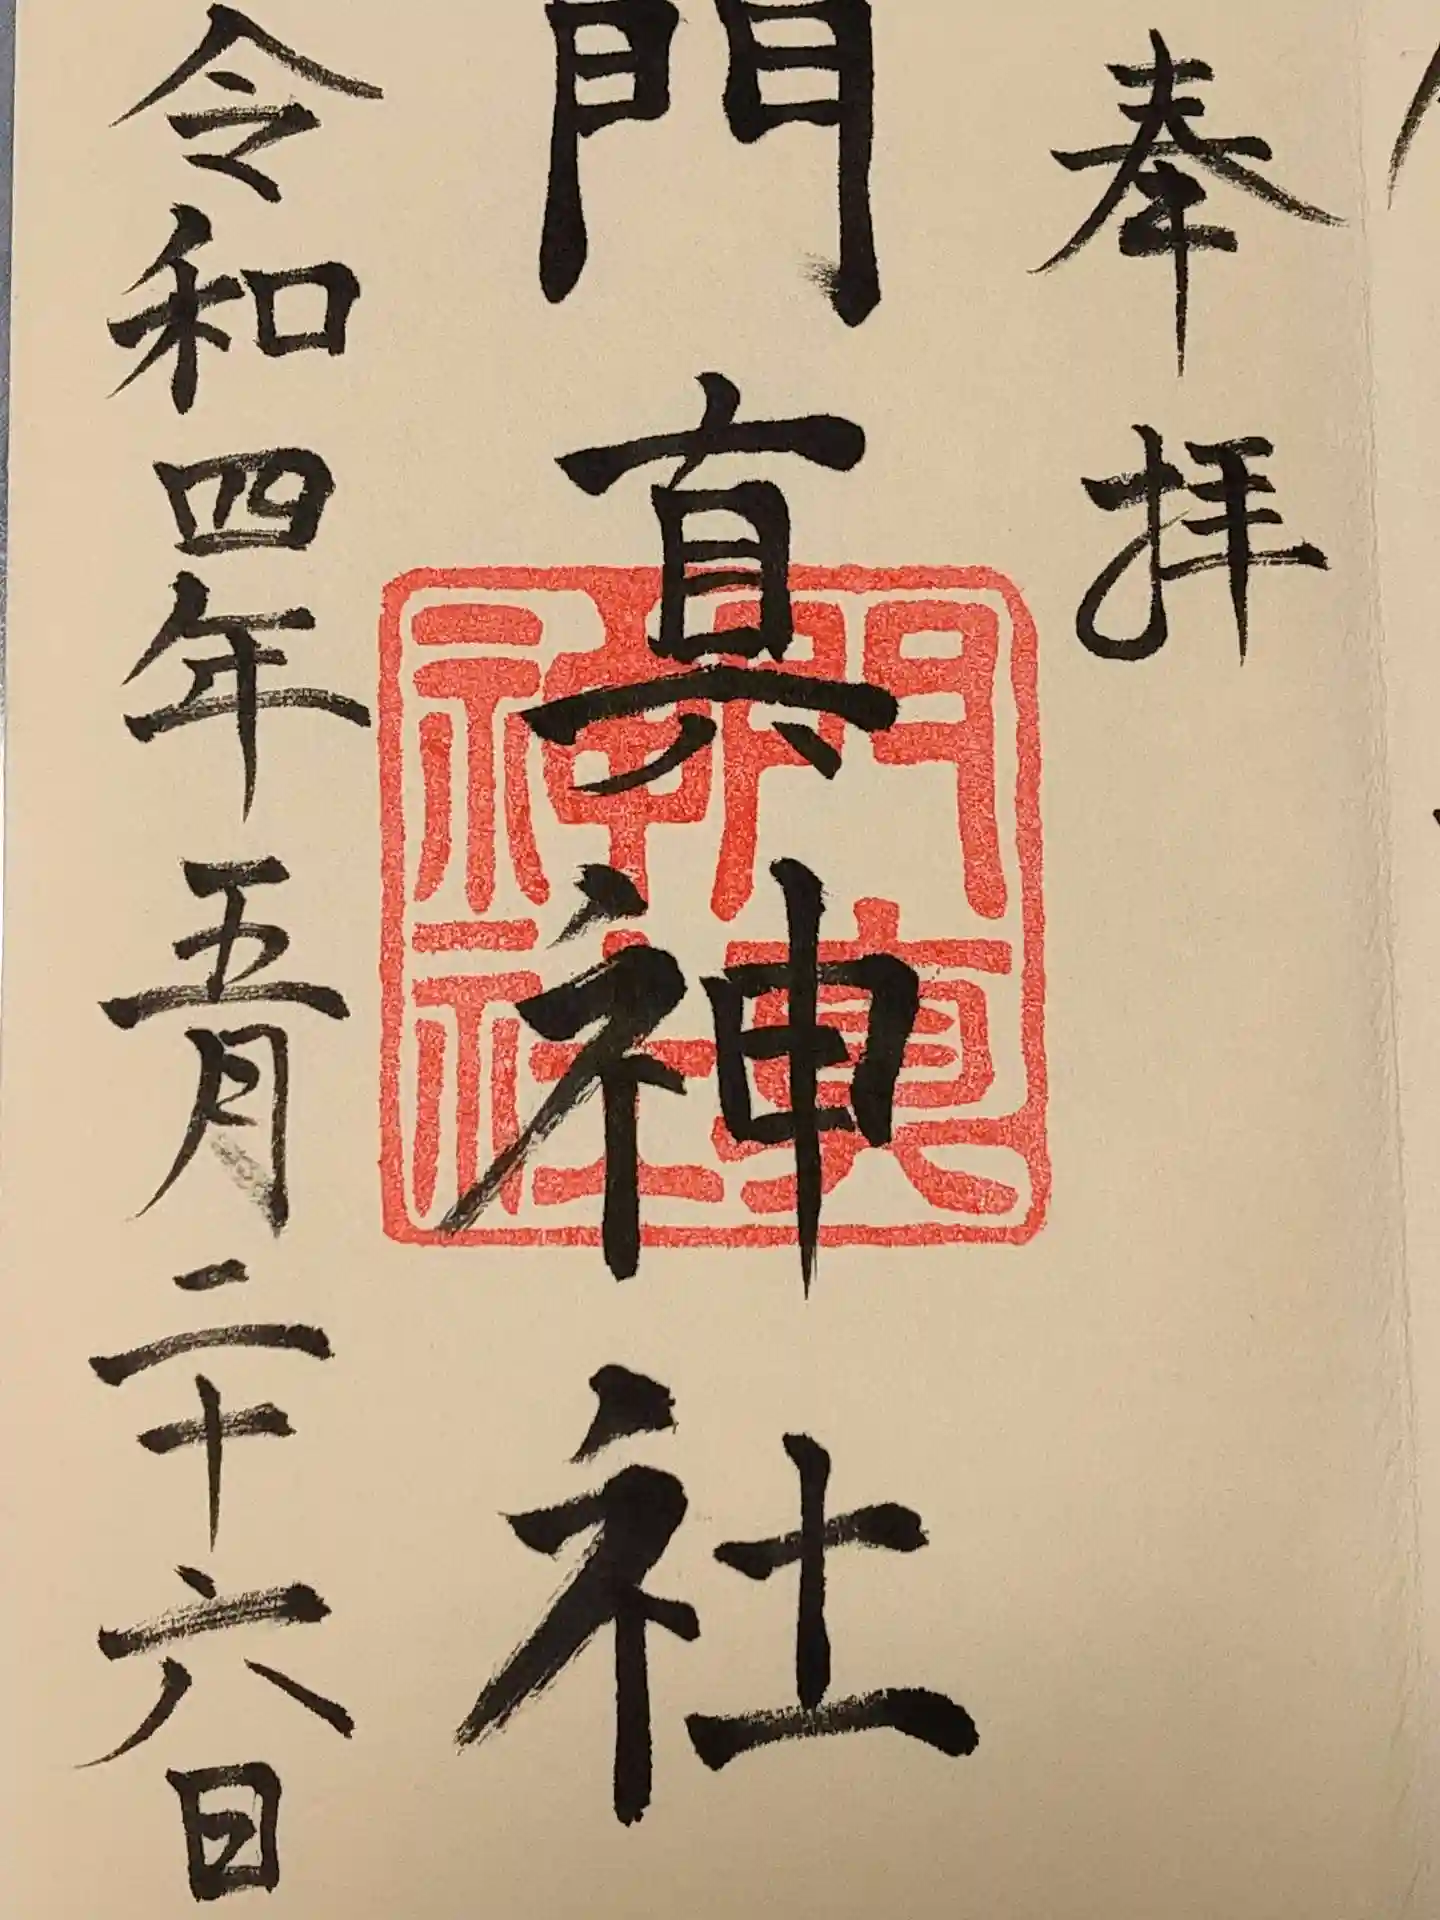 奉拝
門真神社
門真神社
令和四年五月二十六日